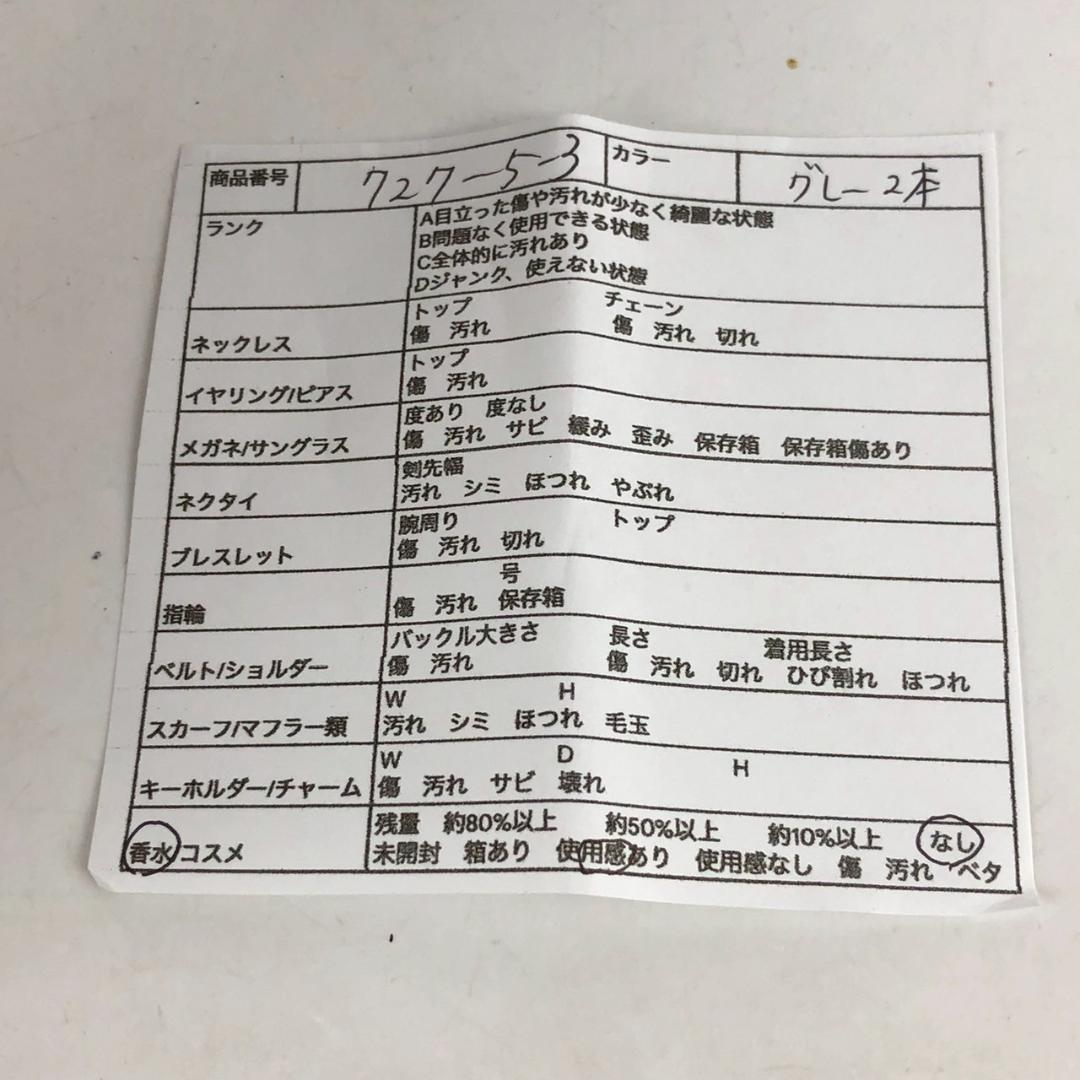 商品番号 727-5-3 カラー グレー2本
ランク A目立った傷や汚れが少なく綺麗な状態
B問題なく使用できる状態
C全体的に汚れあり
Dジャンク、使えない状態
トップ チェーン
ネックレス 傷 汚れ 傷 汚れ 切れ
トップ
イヤリング/ピアス 傷 汚れ
度あり 度なし
メガネ/サングラス 傷 汚れ サビ 緩み 歪み 保存箱 保存箱傷あり
剣先幅
ネクタイ 汚れ シミ ほつれ やぶれ
腕周り トップ
ブレスレット 傷 汚れ 切れ
号
指輪 傷 汚れ 保存箱
バックル大きさ 長さ 着用長さ
ベルト/ショルダー 傷 汚れ 傷 汚れ 切れ ひび割れ ほつれ
W H
スカーフ/マフラー類 汚れ シミ ほつれ 毛玉
W D H
キーホルダー/チャーム 傷 汚れ サビ 壊れ
残量 約80%以上 約50%以上 約10%以上 なし
香水/コスメ 未開封 箱あり 使用感あり 使用感なし 傷 汚れ ベタ